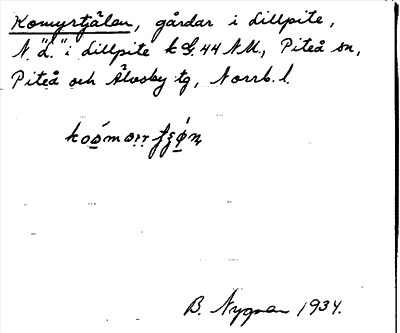 Komyrtjälen, gårdar i Lillpite,
N. "L." i Lillpite k G. 44 NU., Piteå sn,
Piteå och Älvsby tg, Norrb. l.
B. Nygren 1934.